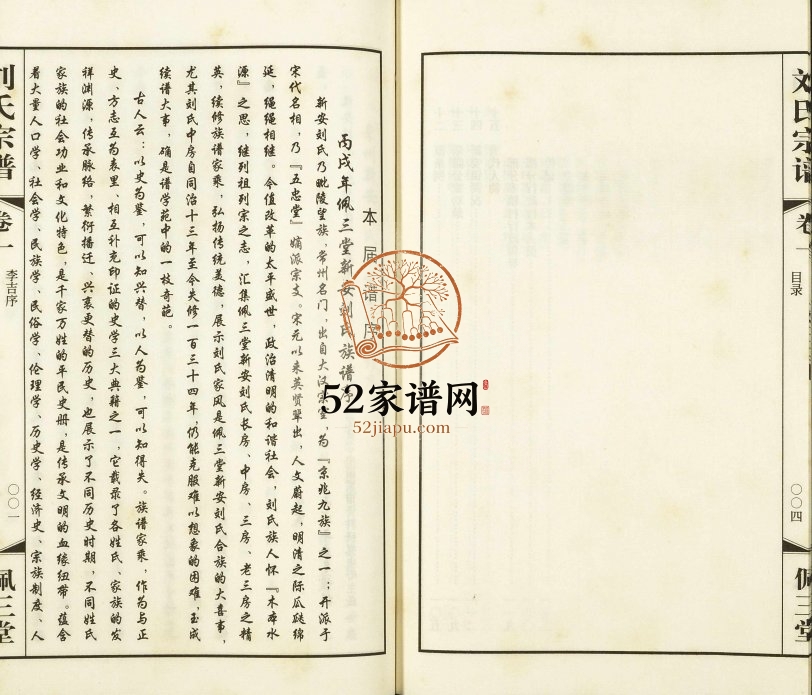 刘氏宗谱
卷一
目录
〇〇四
佩三堂
本届谱序
丙戌年佩三堂新安刘氏族谱序
新安刘氏乃毗陵望族，常州名门，出自大汉宗室，为『京兆九族』之一；开派于
宋代名相，乃『五忠堂』嫡派宗支。宋元以来英贤辈出，人文蔚起，明清之际瓜瓞绵
延，绳绳相继。今值改革的太平盛世，政治清明的和谐社会，刘氏族人怀『木本水
源』之思，继列祖列宗之志，汇集佩三堂新安刘氏长房、中房、三房、老三房之精
英，续修族谱家乘，弘扬传统美德，展示刘氏家风是佩三堂新安刘氏合族的大喜事，
尤其刘氏中房自同治十三年至今失修一百三十四年，仍能克服难以想象的困难，玉成
续谱大事，确是谱学苑中的一枝奇葩。
古人云：以史为鉴，可以知兴替，以人为鉴，可以知得失。族谱家乘，作为与正
史、方志互为表里、相互补充印证的史学三大典籍之一，它载录了各姓氏、家族的发
祥渊源，传承脉络，繁衍播迁、兴衰更替的历史，也展示了不同历史时期，不同姓氏
家族的社会功业和文化特色，是千家万姓的平民史册，是传承文明的血缘纽带。蕴含
着大量人口学、社会学、民族学、民俗学、伦理学、历史学、经济史、宗族制度、人
刘氏宗谱
卷一
李吉序
〇〇一
佩三堂
52家谱网
52jiapu.com